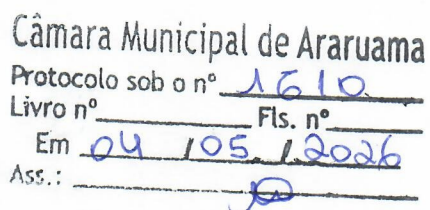 Câmara Municipal de Araruama
Protocolo sob o nº 1610
Livro nº________ Fls. nº______
Em 04 / 05 / 2026
Ass.: ________